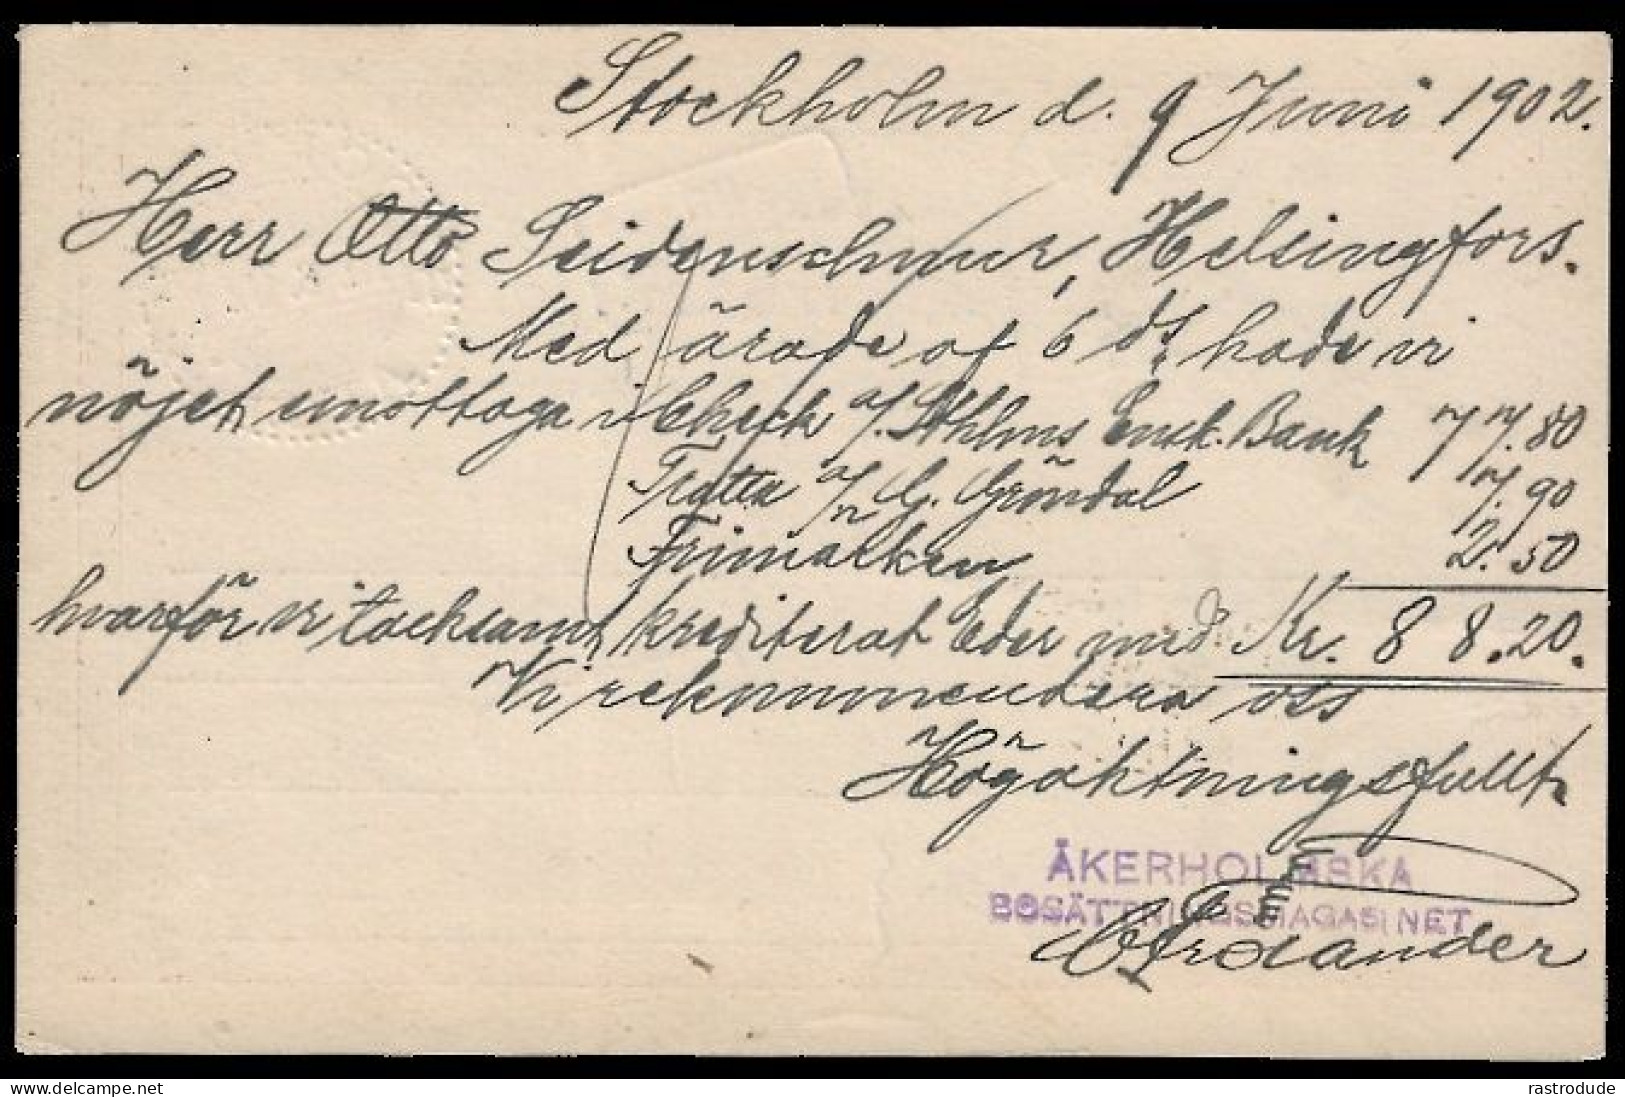 Stockholm d. 9 Juni 1902.
Herr Otto Seidenschnur, Helsingfors.
Med ärade af 6 ds. hade vi
nöjet emottaga i Check a/. Sthlms Ensk. Bank 77.80
Tratta a/ G. Gröndal 7.90
Frimärken 2.50
hvarför vi tacksamt krediterat Eder med Kr. 88.20.
Vi rekommendera oss
Högaktningsfullt
ÅKERHOLMSKA
BOSÄTTNINGSMAGASINET
rastrodude